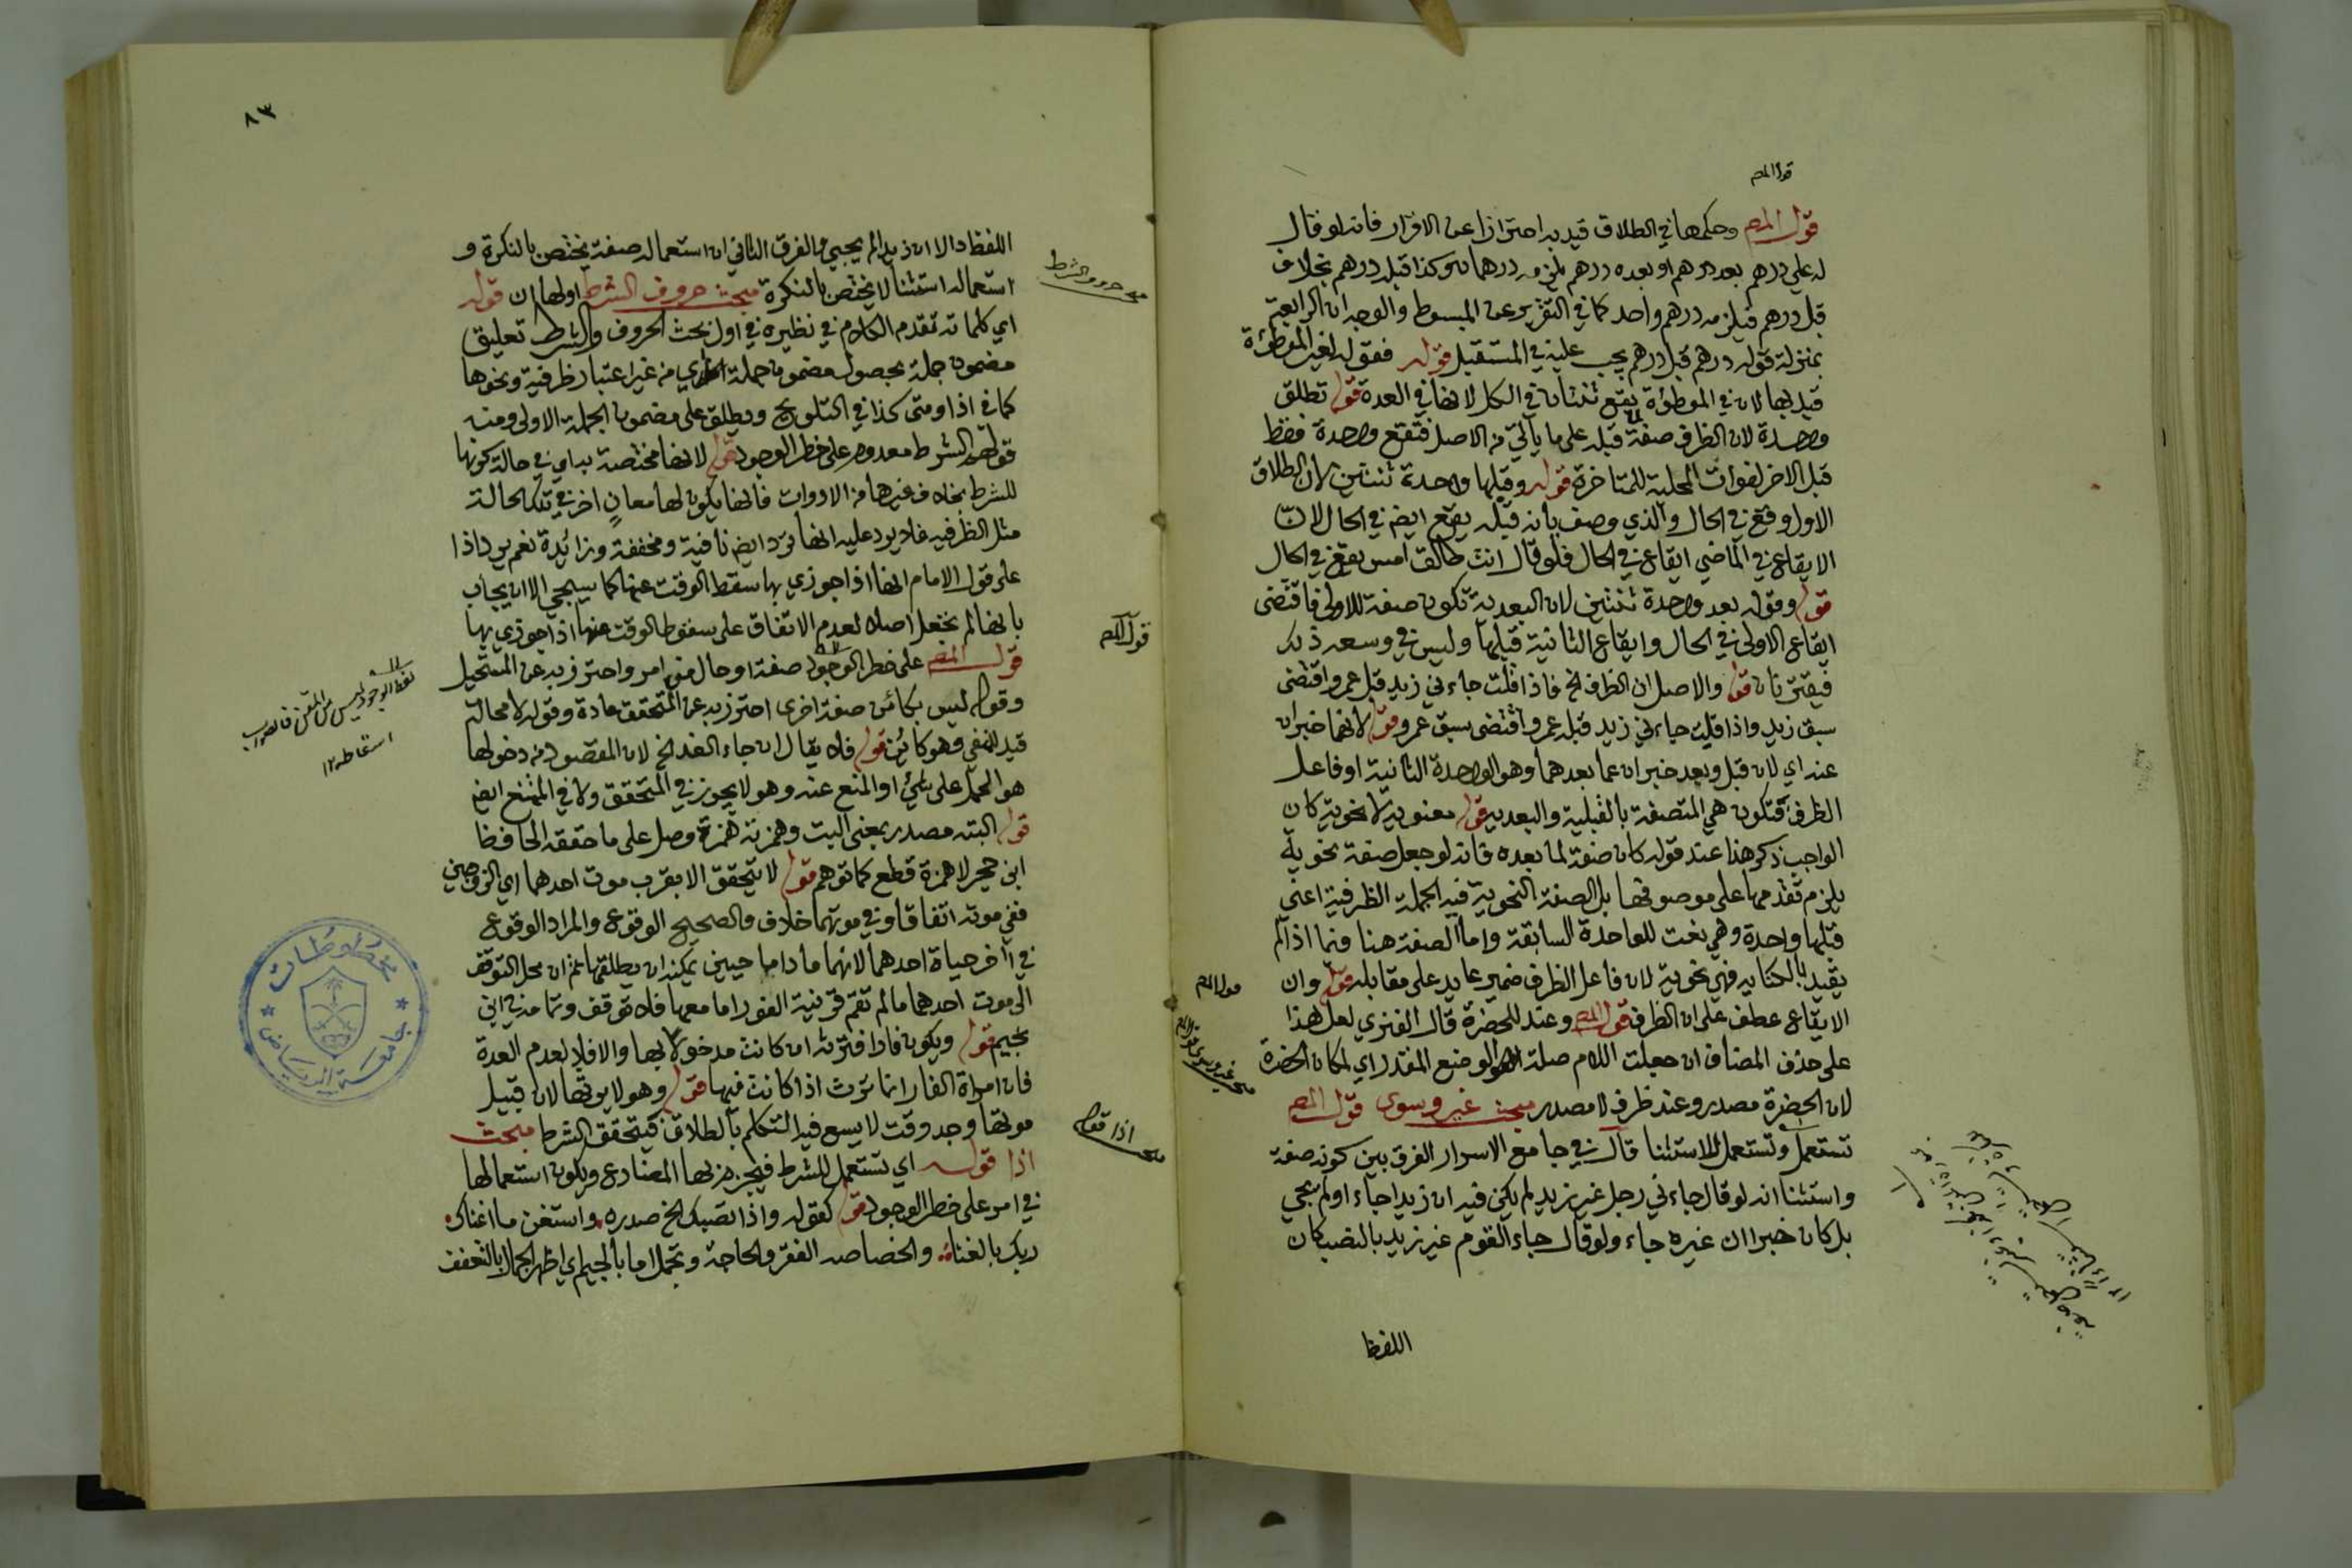 قول المص
قول المص وحكمها في الطلاق قيد به احترازا عن الاقرار فانه لو قال
له علي درهم بعد درهم او بعده درهم يلزمه درهمان وكذا قبله درهم بخلاف
قبل درهم فيلزمه درهم واحد كما في التقرير عن المبسوط والوجه ان الرابعة
بمنزلة قوله درهم قبل درهم يجب عليّ في المستقبل قوله فقوله لغير الموطؤة
قيد بها لان في الموطؤة يقع ثنتان في الكل لانها في العدة قوله تطلق
واحدة لان الظرف صفة لما قبله على ما يأتي من الاصل فتقع واحدة فقط
قبل الاخر لفوات المحلية للمتاخرة قوله وقبلها واحدة ثنتين لان الطلاق
الاول وقع في الحال والذي وصف بانه قبله يقع ايض في الحال لان
الايقاع في الماضي ايقاع في الحال فلو قال انت طالق امس يقع في الحال
قوله وقوله بعد واحدة ثنتين لان البعدية تكون صفة للاولى فاقتضى
ايقاع الاولى في الحال وايقاع الثانية قبلها وليس في وسعه ذلك
فيقترنان قوله والاصل ان الظرف الخ فاذا قلت جاءني زيد قبل عمرو اقتضى
سبق زيد واذا قلت جاءني زيد قبله عمرو اقتضى سبق عمرو قوله لانهما خبران
عنه اي لان قبل وبعد خبران عما بعدهما وهو الواحدة الثانية او فاعل
الظرف فتكون هي المتصفة بالقبلية والبعدية قوله معنوية لا نحوية كان
الواجب ذكر هذا عند قوله كان صفة لما بعده فانه لو جعل صفة نحوية
يلزم تقدمها على موصوفها بل الصفة النحوية فيه الجملة الظرفية اعني
قبلها واحدة وهي نعت للواحدة السابقة واما الصفة هنا فيما اذا لم
يقيد بالكناية فهي نحوية لان فاعل الظرف ضمير عايد على مقابله قوله وان
الايقاع عطف على ان الظرف قول المص وعند للحضرة قال الفنري لعل هذا
على حذف المضاف ان جعلت اللام صلة الوضع المقدر اي لمكان الحضرة
لان الحضرة مصدر وعند ظرف لا مصدر مبحث غير وسوى قول المص
تستعمل وتستعمل للاستثنا قال في جامع الاسرار الفرق بين كونه صفة
واستثنا انه لو قال جاءني رجل غير زيد لم يكن فيه ان زيدا جاء او لم يجي
بل كان خبرا ان غيره جاء ولو قال جاء القوم غير زيد بالنصب كان
قول المص
مبحث غير وسوى قول المص
اللفظ
٨٣
اللفظ دالا ان زيدا لم يجي والفرق الثاني ان استعماله صفة يختص بالنكرة و
استعماله استثنا لا يختص بالنكرة مبحث حروف الشرط اولها ان قوله
اي كلماته تقدم الكلام في نظيره في اول بحث الحروف والشرط تعليق
مضمون جملة بحصول مضمون جملة اخرى من غير اعتبار ظرفية ونحوها
كما في اذا ومتى كذا في التلويح ويطلق على مضمون الجملة الاولى ومنه
قولهم الشرط معدوم على خطر الوجود قوله لانها مختصة به اي في حالة كونها
للشرط بخلاف غيرها من الادوات فانها يكون لها معان اخر في تلك الحالة
مثل الظرفيه فلا يرد عليه انها ترد ايض نافية ومخففة وزائدة نعم يرد اذا
على قول الامام انها اذا جوزي بها سقط الوقت عنها كما سيجي الا ان يجاب
بانها لم تجعل اصلا لعدم الاتفاق على سقوط الوقت عنها اذا جوزي بها
قول المص على خطر الوجود صفة او حال من امر واحترز به عن المستحيل
وقوله ليس بكائن صفة اخرى احترز به عن المتحقق عادة وقوله لا محالة
قيد للنفي وهو كائن قوله فلا يقال ان جاء الغد الخ لان المقصود من دخولها
هو الحمل على شيئ او المنع عنه وهو لا يجوز في المتحقق ولا في الممتنع ايض
قوله البته مصدر بمعنى البت وهمزته همزة وصل على ما حققه الحافظ
ابن حجر لا همزة قطع كما توهم قوله لا يتحقق الا بقرب موت احدهما اي الزوجين
ففي موته اتفاقا وفي موتها خلاف والصحيح الوقوع والمراد الوقوع
في آخر حياة احدهما لانهما ما داما حيين يمكنه ان يطلقها ثم ان محل التوقف
الى موت احدهما ما لم تقم قرينة الفور اما معها فلا توقف وتمامه في ابن
نجيم قوله ويكون فارا فترثه ان كانت مدخولا بها والا فلا لعدم العدة
فان امراة الفار انما ترث اذا كانت فيها قوله وهو لا يرثها لان قبيل
موتها وجد وقت لا يسع فيه التكلم بالطلاق فيتحقق الشرط مبحث
اذا قوله اي تستعمل للشرط فيجزم بها المضارع ويكون استعمالها
في امر على خطر الوجود قوله كقوله واذا تصبك الخ صدره واستغن ما اغناك
ربك بالغنا والخصاصه الفقر والحاجة وتجمل اما بالجيم اي اظهر الجمال بالتعفف
مبحث حروف الشرط
قول المص
مبحث اذا قوله
لفظ الوجود ليس من المتن فالصواب
اسقاطه ١٢
مخطوطات
جامعة الرياض